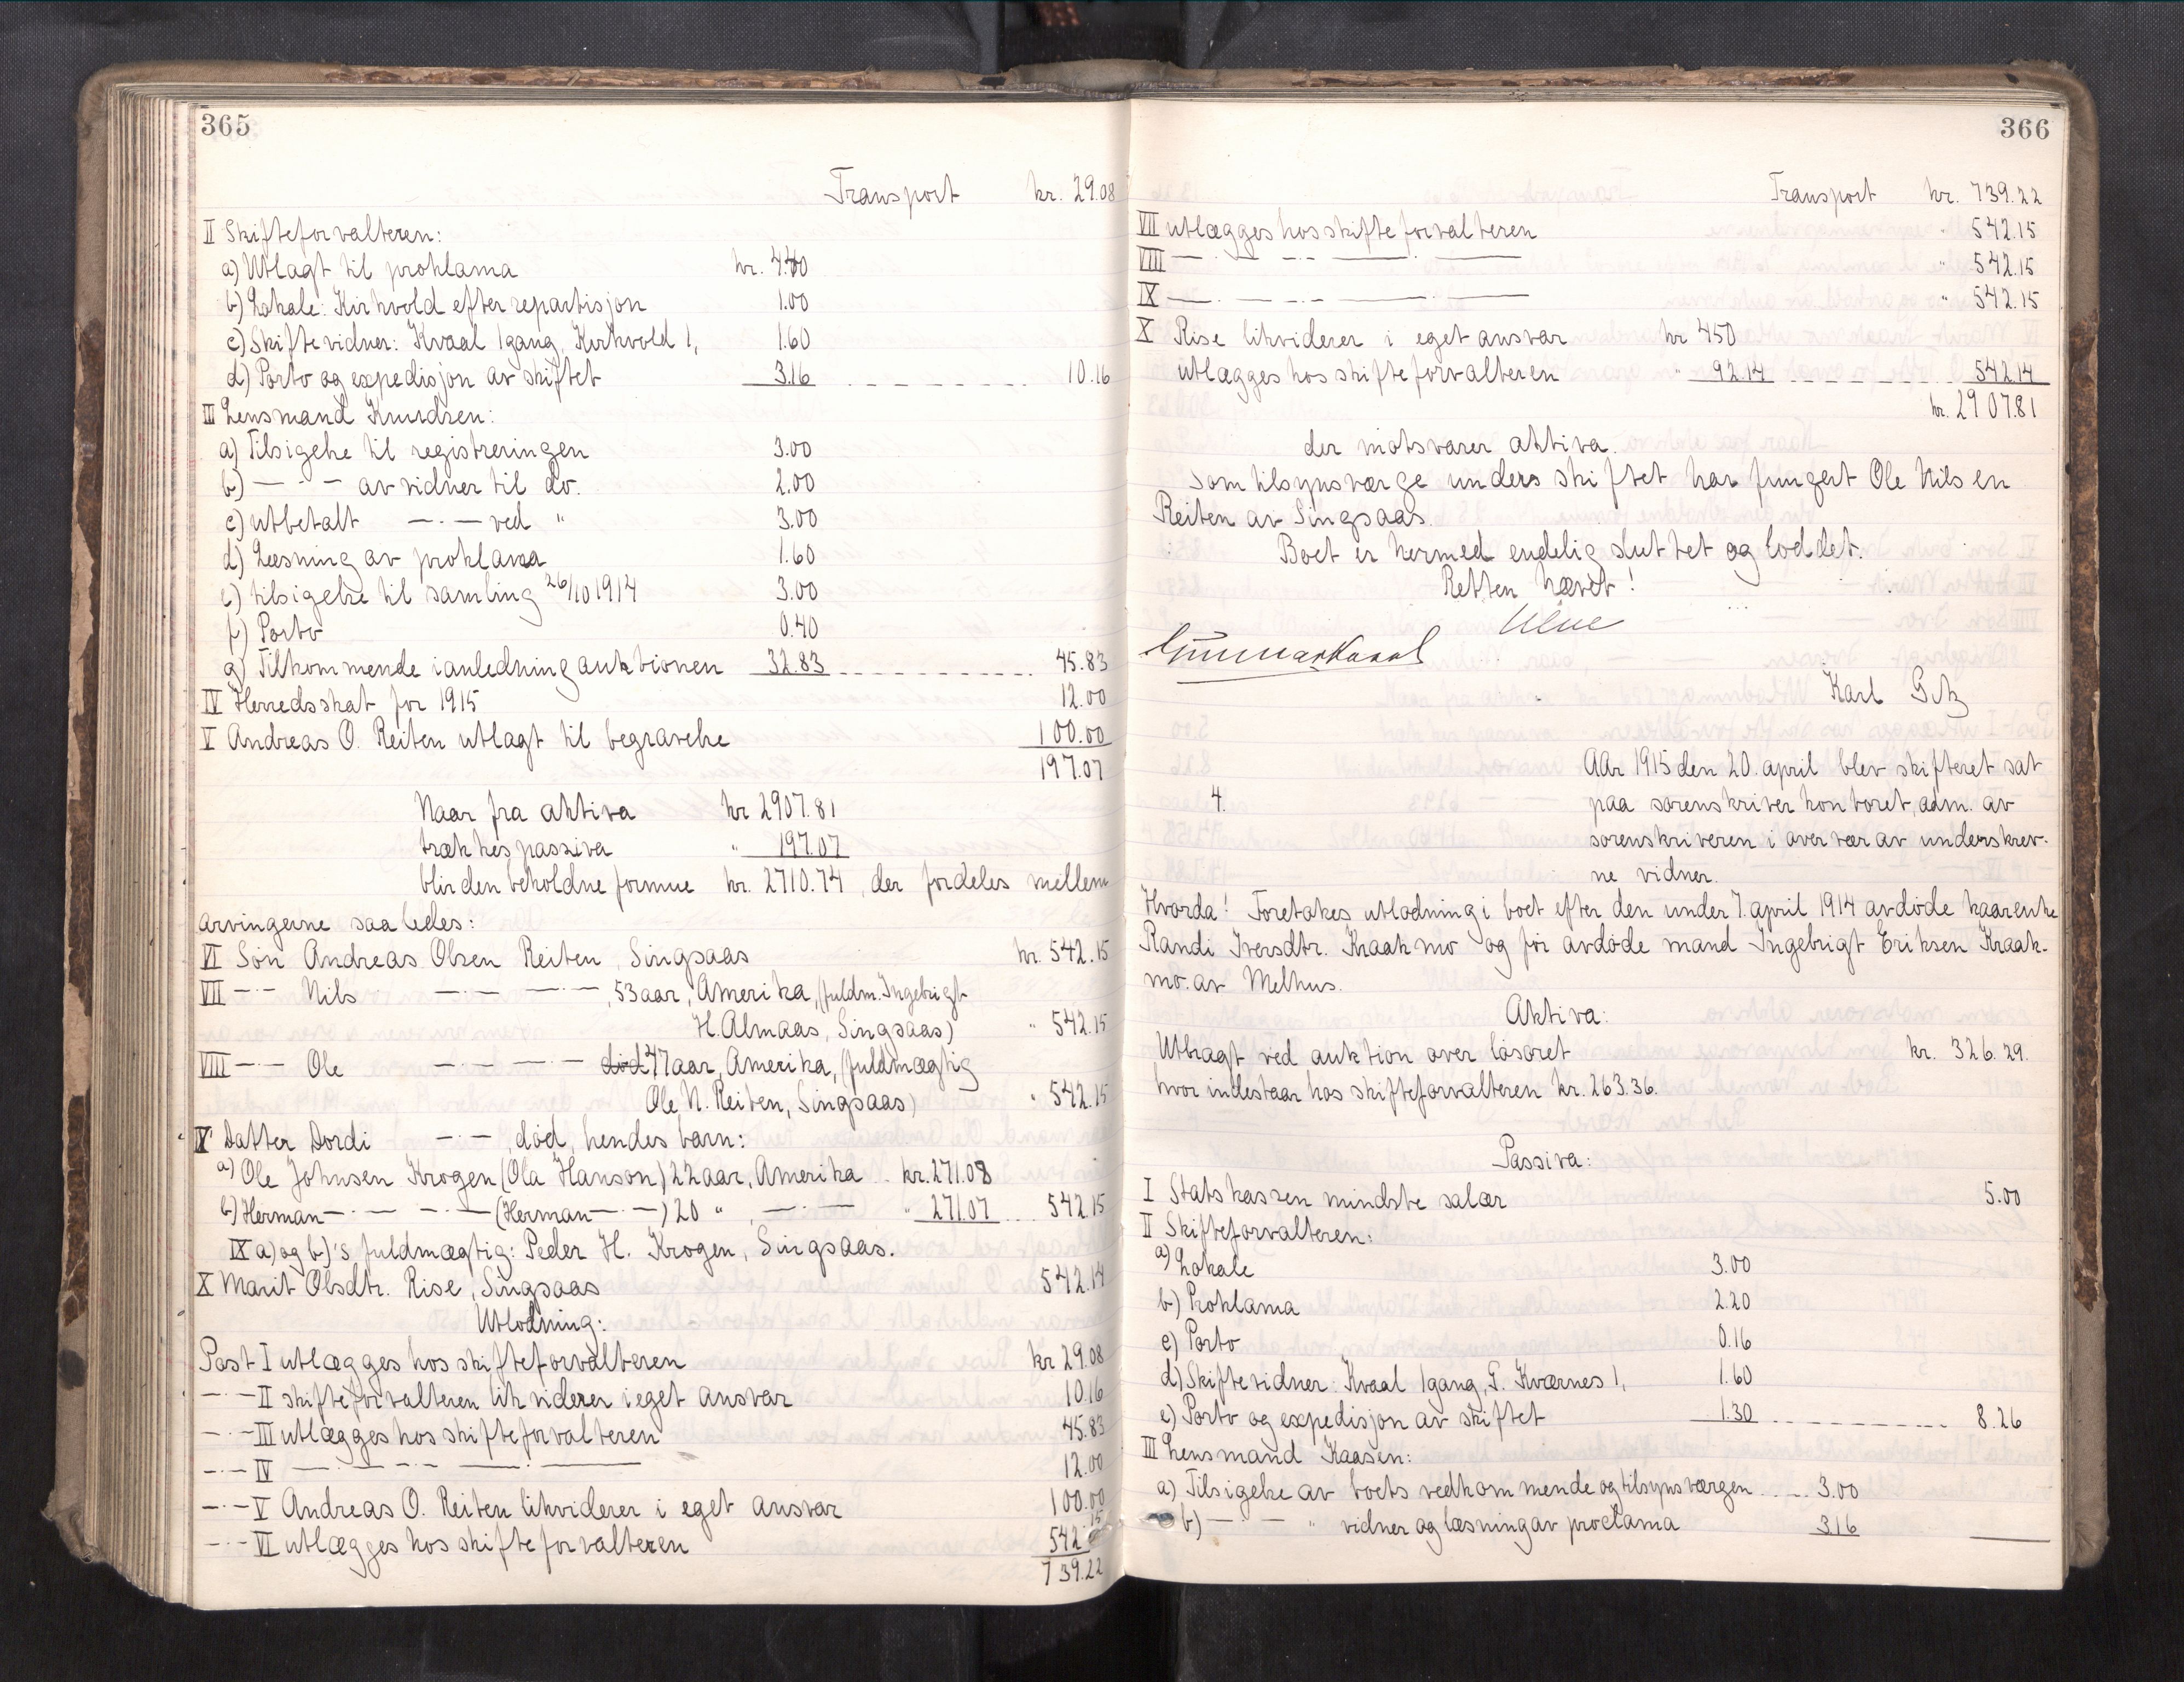 365
Transport kr. 29.08
II Skifteforvalteren:
a) Utlagt til proklama kr. 4.40
b) Lokale: Kirkvold efter repartisjon 1.00
c) Skiftevidner: Kvaal 1 gang, Kirkvold 1, 1.60
d) Porto og expedisjon av skiftet 3.16 10.16
III Lensmand Knudsen:
a) Tilsigelse til registreringen 3.00
b) —·— av vidner til do. 2.00
c) utbetalt —·— ved " 3.00
d) Læsning av proklama 1.60
e) tilsigelse til samling 26/10 1914 3.00
f) Porto 0.40
g) Tilkommende i anledning auktionen 32.83 45.83
IV Herredsskat for 1915 12.00
V Andreas O. Reiten utlagt til begravelse 100.00
197.07
Naar fra aktiva kr 2907.81
trækkes passiva " 197.07
blir den beholdne formue kr. 2710.74, der fordeles mellem
arvingerne saaledes:
VI Søn Andreas Olsen Reiten, Singsaas kr. 542.15
VII —·— Nils —·— —·—, 53 aar, Amerika, (fuldm. Ingebrigt
H. Almaas, Singsaas) " 542.15
VIII —·— Ole —·— —·— død 47 aar, Amerika, (fuldmægtig
Ole N. Reiten, Singsaas) " 542.15
IX Datter Dordi —·—, død, hendes barn:
a) Ole Johnsen Krogen (Ola Hanson) 22 aar, Amerika kr. 271.08
b) Herman —·— —·— (Herman —·—) 20 " , —·— " 271.07 542.15
IX a) og b)'s fuldmægtig: Peder H. Krogen, Singsaas.
X Marit Olsdtr. Rise, Singsaas 542.14
Utlodning:
Post I utlægges hos skifteforvalteren kr 29.08
—·— II skifteforvalteren likviderer i eget ansvar 10.16
—·— III utlægges hos skifteforvalteren 45.83
—·— IV —·— —·— —·— 12.00
—·— V Andreas O. Reiten likviderer i eget ansvar 100.00
—·— VI utlægges hos skifteforvalteren 542.15
739.22
366
Transport kr. 739.22
VII utlægges hos skifteforvalteren " 542.15
VIII —·— —·— —·— " 542.15
IX —·— —·— —·— " 542.15
X Rise likviderer i eget ansvar kr 450
utlægges hos skifteforvalteren " 92.14 542.14
kr. 2907.81
der motsvarer aktiva.
Som tilsynsværge under skiftet har fungert Ole Nilsen
Reiten av Singsaas.
Boet er hermed endelig sluttet og loddet.
Retten hævet!
Gunnar Kvaal
Karl
4.
Aar 1915 den 20. april blev skifteret sat
paa sorenskriverkontoret, adm. av
sorenskriveren i overvær av underskrev-
ne vidner.
Hvorda! Foretakes utlodning i boet efter den under 7. april 1914 avdøde kaarenke
Randi Iversdtr. Kraakmo og før avdøde mand Ingebrigt Eriksen Kraak-
mo. av Melhus.
Aktiva:
Utbragt ved auktion over løsøret kr. 326.29.
hvor indestaar hos skifteforvalteren kr. 263.36.
Passiva:
I Statskassen mindste salær 5.00
II Skifteforvalteren:
a) Lokale 3.00
b) Proklama 2.20
c) Porto 0.16
d) Skiftevidner: Kvaal 1 gang, G. Kværnes 1, 1.60
e) Porto og expedisjon av skiftet 1.30 8.26
III Lensmand Kaasen:
a) Tilsigelse av boets vedkommende og tilsynsværgen 3.00
b) —·— " vidner og læsning av proclama 3.16